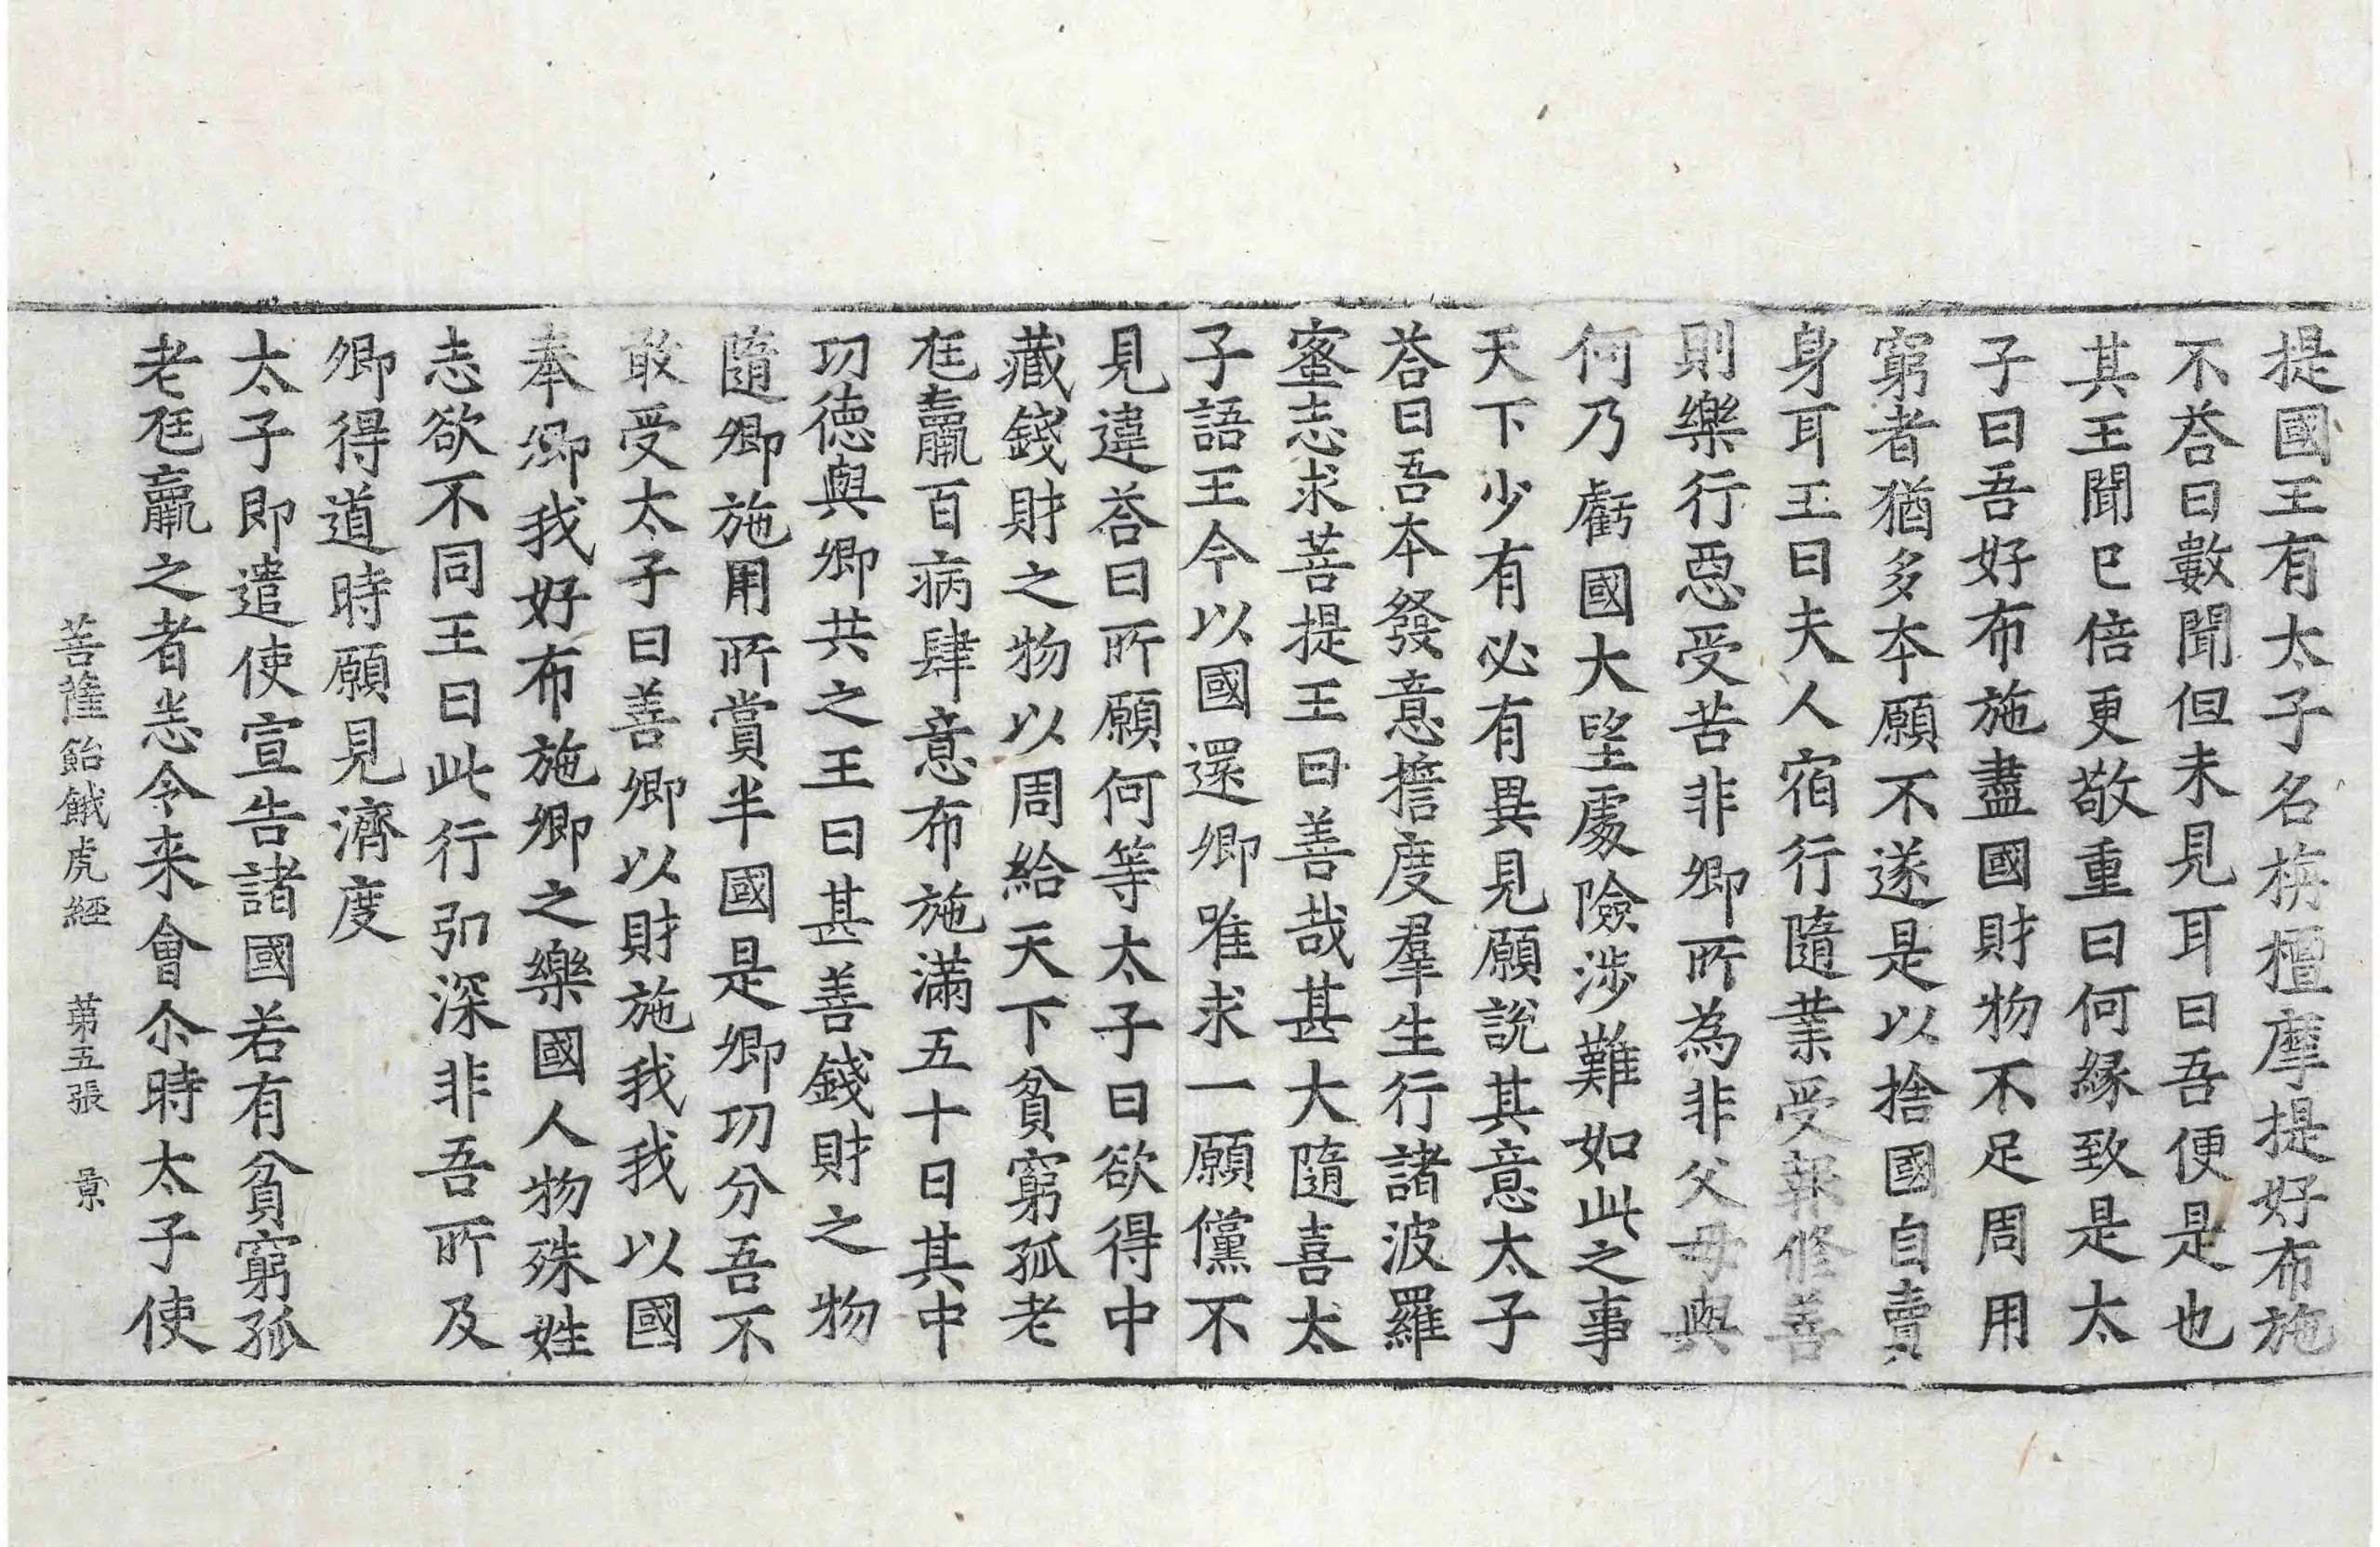 提國王有太子名栴檀摩提好布施
不荅曰數聞但未見耳曰吾便是也
其王聞已倍更敬重曰何緣致是太
子曰吾好布施盡國財物不足周用
窮者猶多本願不遂是以捨國自賣
身耳王曰夫人宿行隨業受報修善
則樂行惡受苦非卿所為非父母與
何乃虧國大望處險涉難如此之事
天下少有必有異見願說其意太子
荅曰吾本發意擔度羣生行諸波羅
蜜志求菩提王曰善哉甚大隨喜太
子語王今以國還卿唯求一願儻不
見違荅曰所願何等太子曰欲得中
藏錢財之物以周給天下貧窮孤老
尫羸百病肆意布施滿五十日其中
功德與卿共之王曰甚善錢財之物
隨卿施用所賞半國是卿功分吾不
敢受太子曰善卿以財施我我以國
奉卿我好布施卿之樂國人物殊姓
志欲不同王曰此行弘深非吾所及
卿得道時願見濟度
太子即遣使宣告諸國若有貧窮孤
老尫羸之者悉令来會尒時太子使
菩薩飴餓虎經 第五張 景